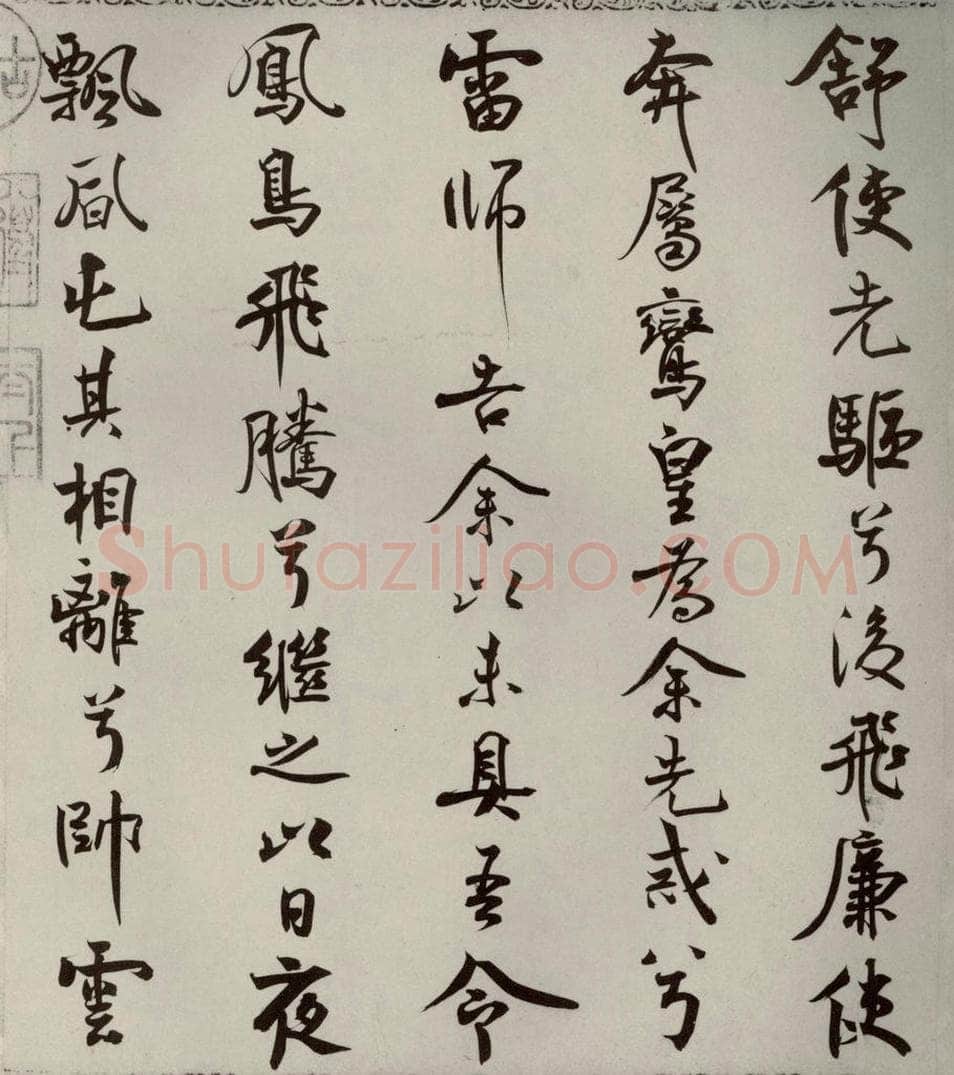 舒使先驅兮後飛廉使
奔屬鸞皇為余先戒兮
雷師告余以未具吾令
鳳鳥飛騰兮繼之以日夜
飄風屯其相離兮帥雲
Shufaziliao.COM